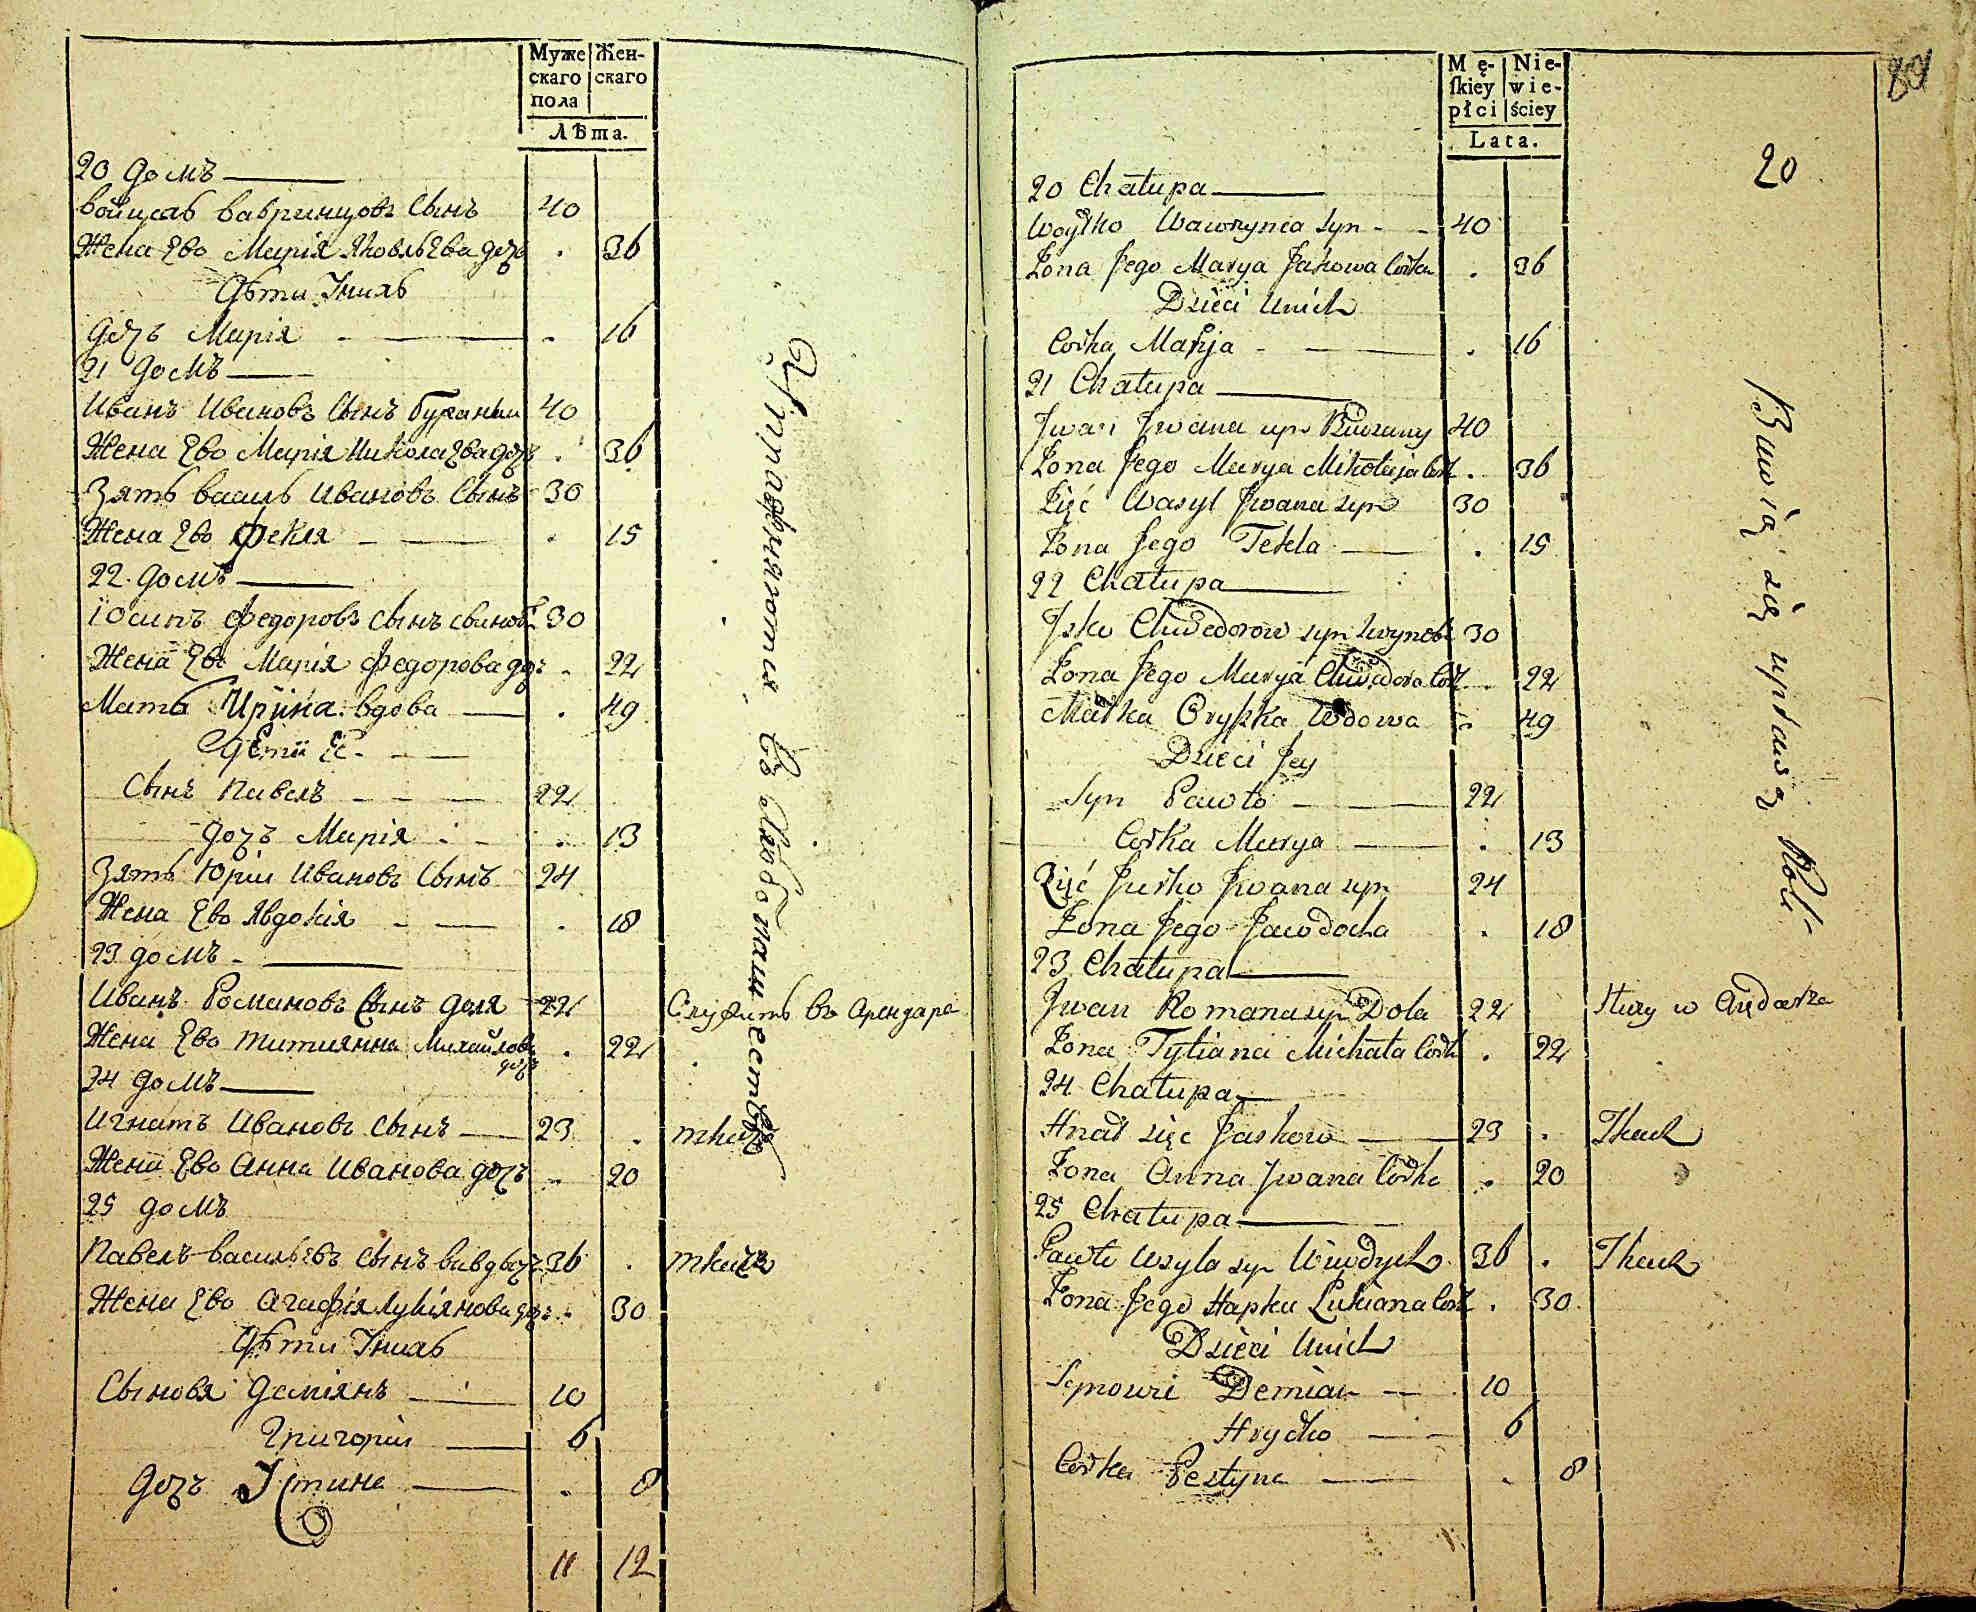 Муже- Жен-
скаго скаго
пола
Лѣта.
20 домъ
Войцеԑъ Вавринцовъ сынъ 40
Жена Ево Марія Яковлева дочъ . 36
Дѣти Ихнихъ
дочъ Марія . 16
21 домъ
Иванъ Ивановъ сынъ Бураный 40
Жена Ево Марія Миколаева дочъ . 36
Зять Василь Ивановъ сынъ 30
Жена Ево Фекля . 15
22 домъ
Іосипъ Федоровъ сынъ 30
Жена Ево Марія Федорова дочъ . 22
Мать Ирина вдова . 49
Дети Ее
сынъ Павелъ 22
дочъ Марія . 13
Зять Юрій Ивановъ сынъ 24
Жена Ево Явдокія . 18
23 домъ
Иванъ Романовъ сынъ Доля 22 Служитъ въ Арендара
Жена Ево Титиянна Михайлова дочъ . 22
24 домъ
Игнатъ Ивановъ сынъ 23 . ткачъ
Жена Ево Анна Иванова дочъ . 20
25 домъ
Павелъ Васильевъ сынъ 36 . ткачъ
Жена Ево Агафія Лукіянова дочъ . 30
Дѣти Ихнихъ
Сыновя Деміянъ 10
Григорій 6
дочъ Устина . 8
11 12
Упражняются въ хлебопашестве
89
20
Mę- Nie-
ſkiey wie-
płci ściey
Lata.
20 Chałupa
Woytko Wawrynca syn 40
Żona Jego Marya Jakowa Corka . 36
Dzieci Unich
Corka Marya . 16
21 Chałupa
Jwan Jwana syn Burany 40
Żona Jego Marya Mikołaja Cork . 36
Zięć Wasyl Jwana syn 30
Żona Jego Tekla . 15
22 Chałupa
Jsko Chwedorow syn 30
Żona Jego Marya Chwedora Cork . 22
Matka Oryszka Wdowa . 49
Dzieci Jey
Syn Pawło 22
Corka Marya . 13
Zięć Jurko Jwana syn 24
Żona Jego Jawdocha . 18
23 Chałupa
Jwan Romana syn Dola 22 Służy w Arędarza
Żona Tytiana Michała Cork . 22
24 Chałupa
Hnat zięc Jaskow 23 . Tkach
Żona Anna Jwana Corka . 20
25 Chałupa
Pawło Wasyla syn Wiwdycho 36 . Tkach
Żona Jego Hapka Lukiana Cork . 30
Dzieci Unich
Synowie Demian 10
Hryćko 6
Corka Jestyna . 8
Bawią się uprawą Roli